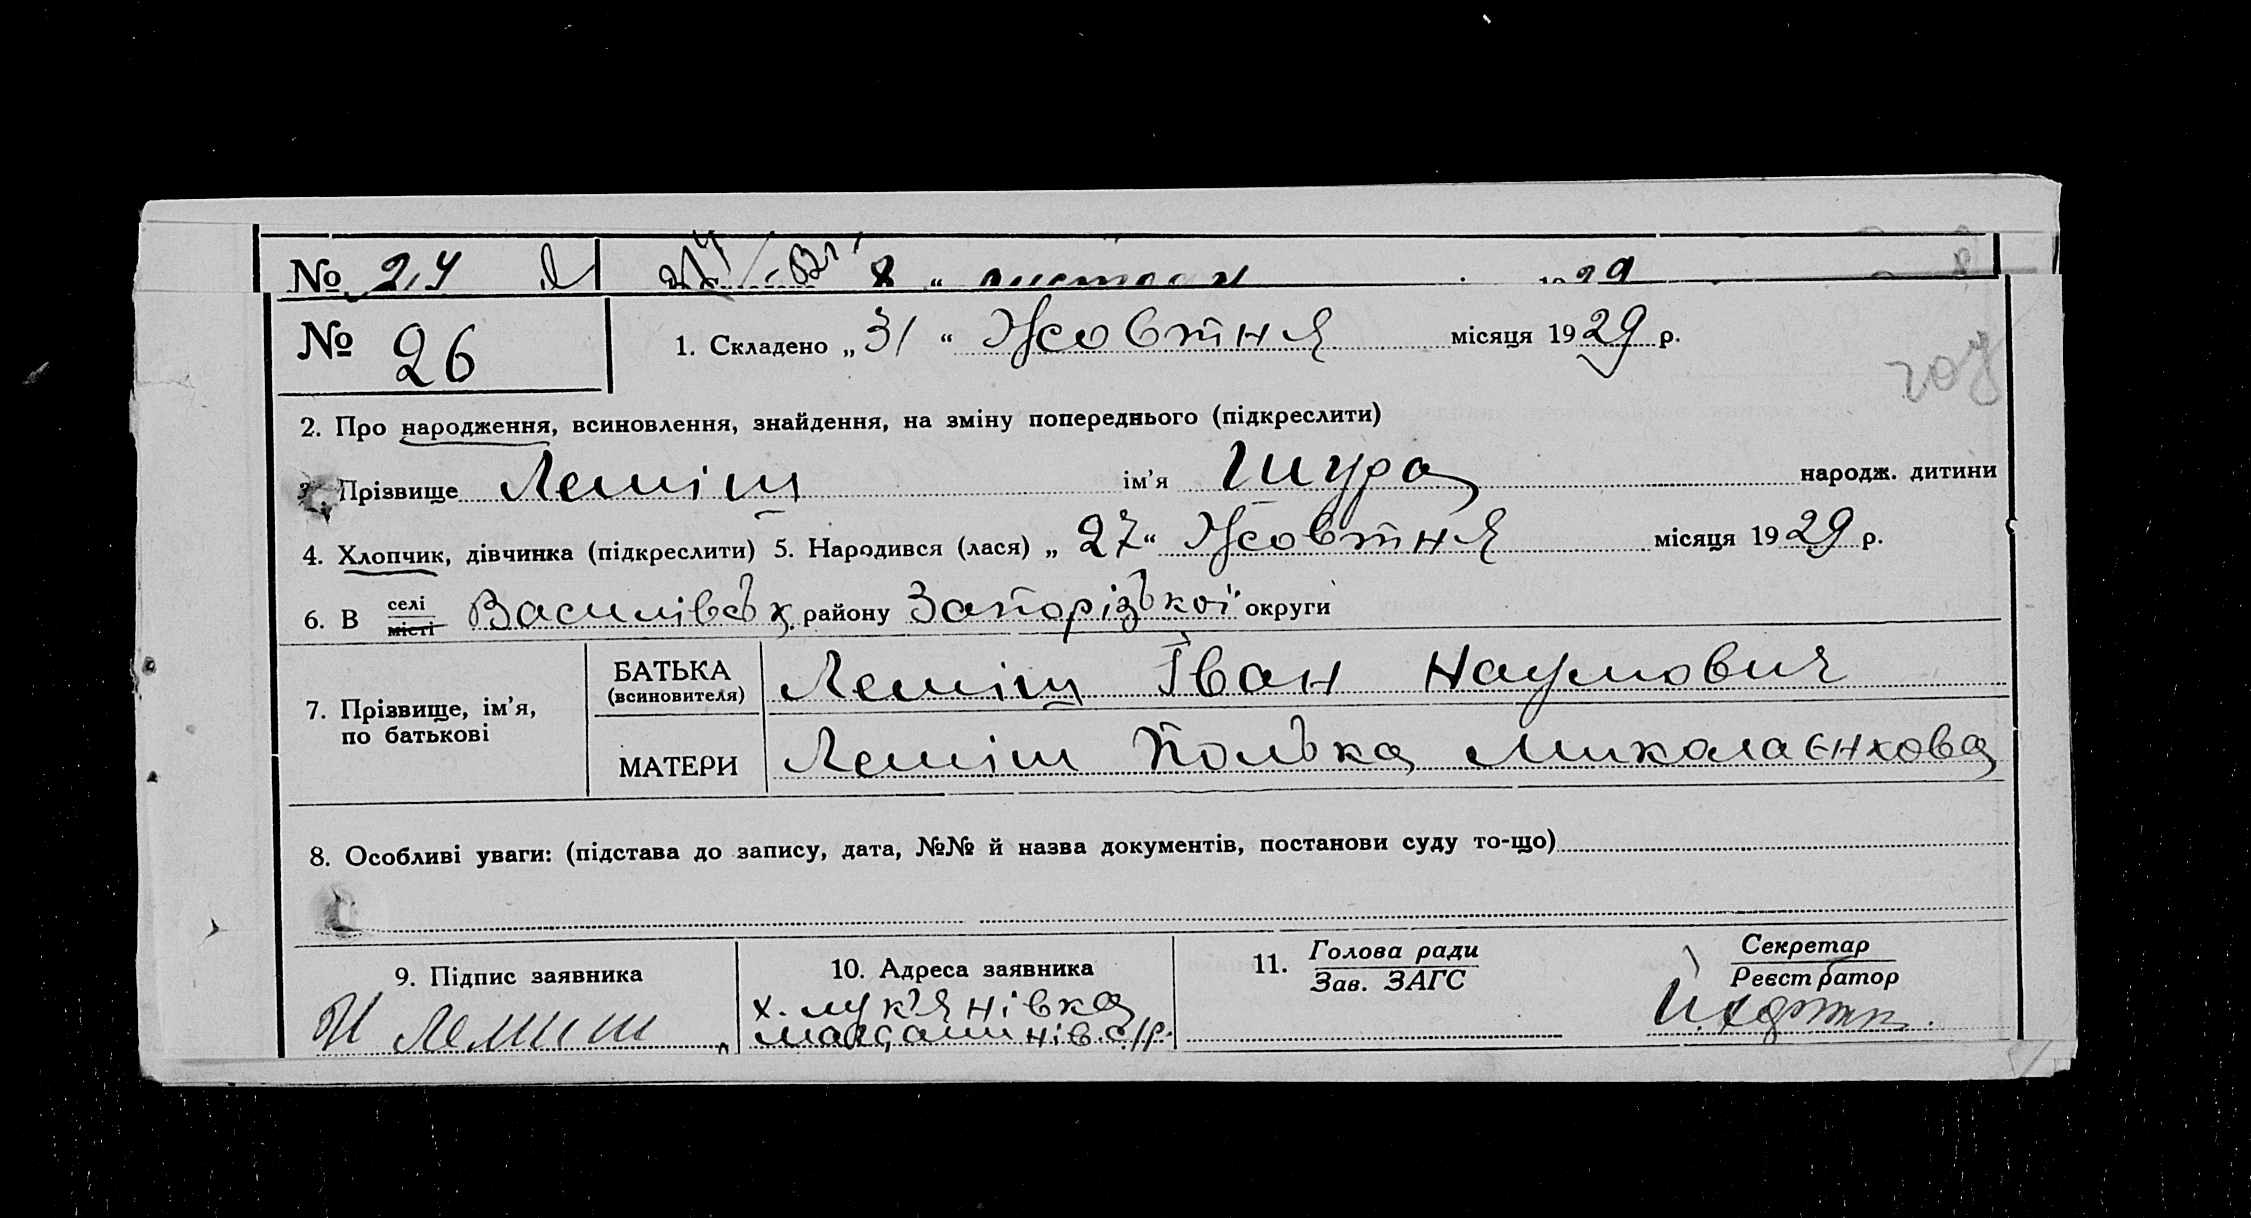 № 24
8 " 29
№ 26
1. Складено „ 31 " Жовтня місяця 1929 р.
208
2. Про народження, всиновлення, знайдення, на зміну попереднього (підкреслити)
3. Прізвище Леміш ім'я Шура народж. дитини
4. Хлопчик, дівчинка (підкреслити) 5. Народився (лася) „ 27 " Жовтня місяця 1929 р.
6. В селі місті Василівськ. району Запорізької округи
7. Прізвище, ім'я, по батькові
БАТЬКА (всиновителя) Леміш Іван Наумович
МАТЕРИ Леміш Полька
8. Особливі уваги: (підстава до запису, дата, №№ й назва документів, постанови суду то-що)
9. Підпис заявника
И Лемиш
10. Адреса заявника
х. Лук'янівка
с/р.
11. Голова ради
Зав. ЗАГС
Секретар
Реєстратор